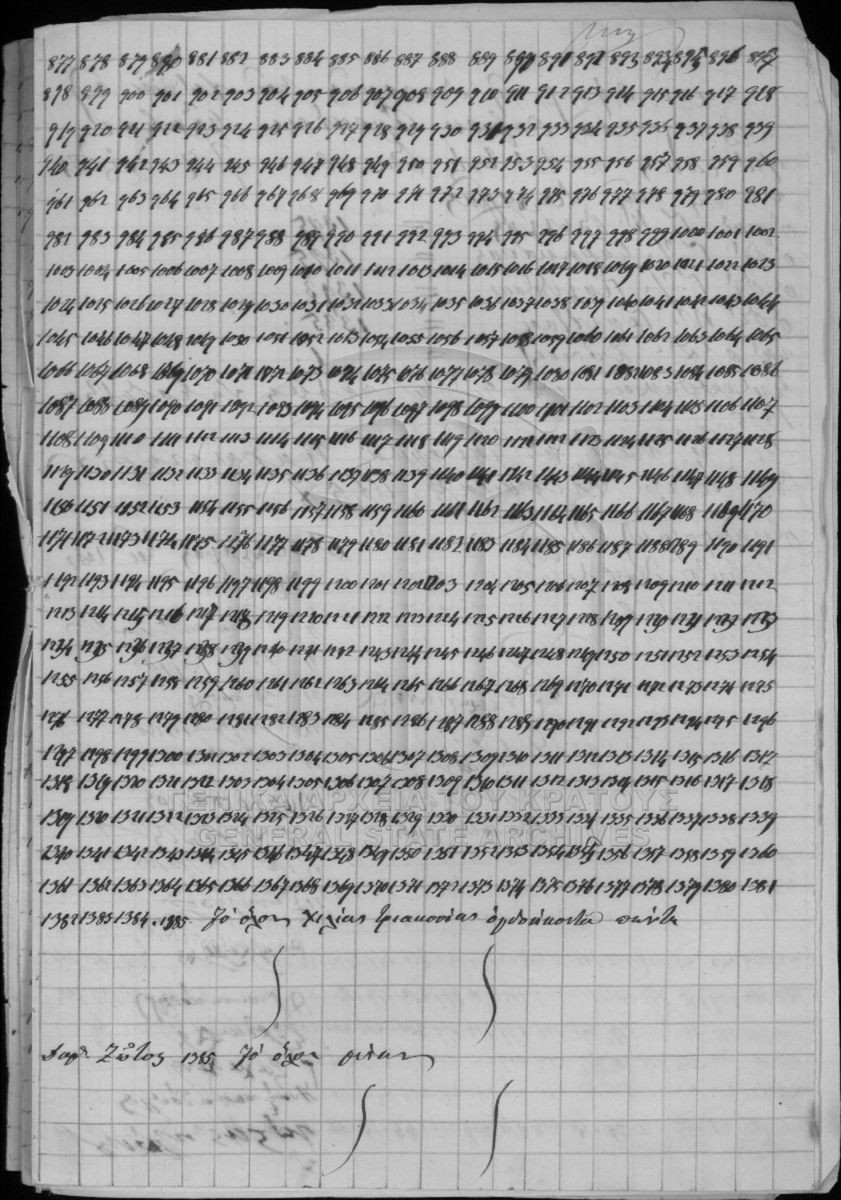 877 878 879 880 881 882 883 884 885 886 887 888 889 890 891 892 893 894 895 896 897
898 899 900 901 902 903 904 905 906 907 908 909 910 911 912 913 914 915 916 917 918
919 920 921 922 923 924 925 926 927 928 929 930 931 932 933 934 935 936 937 938 939
940 941 942 943 944 945 946 947 948 949 950 951 952 953 954 955 956 957 958 959 960
961 962 963 964 965 966 967 968 969 970 971 972 973 974 975 976 977 978 979 980 981
982 983 984 985 986 987 988 989 990 991 992 993 994 995 996 997 998 999 1000 1001 1002
1003 1004 1005 1006 1007 1008 1009 1010 1011 1012 1013 1014 1015 1016 1017 1018 1019 1020 1021 1022 1023
1024 1025 1026 1027 1028 1029 1030 1031 1032 1033 1034 1035 1036 1037 1038 1039 1040 1041 1042 1043 1044
1045 1046 1047 1048 1049 1050 1051 1052 1053 1054 1055 1056 1057 1058 1059 1060 1061 1062 1063 1064 1065
1066 1067 1068 1069 1070 1071 1072 1073 1074 1075 1076 1077 1078 1079 1080 1081 1082 1083 1084 1085 1086
1087 1088 1089 1090 1091 1092 1093 1094 1095 1096 1097 1098 1099 1100 1101 1102 1103 1104 1105 1106 1107
1108 1109 1110 1111 1112 1113 1114 1115 1116 1117 1118 1119 1120 1121 1122 1123 1124 1125 1126 1127 1128
1129 1130 1131 1132 1133 1134 1135 1136 1137 1138 1139 1140 1141 1142 1143 1144 1145 1146 1147 1148 1149
1150 1151 1152 1153 1154 1155 1156 1157 1158 1159 1160 1161 1162 1163 1164 1165 1166 1167 1168 1169 1170
1171 1172 1173 1174 1175 1176 1177 1178 1179 1180 1181 1182 1183 1184 1185 1186 1187 1188 1189 1190 1191
1192 1193 1194 1195 1196 1197 1198 1199 1200 1201 1202 1203 1204 1205 1206 1207 1208 1209 1210 1211 1212
1213 1214 1215 1216 1217 1218 1219 1220 1221 1222 1223 1224 1225 1226 1227 1228 1229 1230 1231 1232 1233
1234 1235 1236 1237 1238 1239 1240 1241 1242 1243 1244 1245 1246 1247 1248 1249 1250 1251 1252 1253 1254
1255 1256 1257 1258 1259 1260 1261 1262 1263 1264 1265 1266 1267 1268 1269 1270 1271 1272 1273 1274 1275
1276 1277 1278 1279 1280 1281 1282 1283 1284 1285 1286 1287 1288 1289 1290 1291 1292 1293 1294 1295 1296
1297 1298 1299 1300 1301 1302 1303 1304 1305 1306 1307 1308 1309 1310 1311 1312 1313 1314 1315 1316 1317
1318 1319 1320 1321 1322 1303 1304 1305 1306 1307 1308 1309 1310 1311 1312 1313 1314 1315 1316 1317 1318
1319 1320 1321 1322 1323 1324 1325 1326 1327 1328 1329 1330 1331 1332 1333 1334 1335 1336 1337 1338 1339
1340 1341 1342 1343 1344 1345 1346 1347 1348 1349 1350 1351 1352 1353 1354 1355 1356 1357 1358 1359 1360
1361 1362 1363 1364 1365 1366 1367 1368 1369 1370 1371 1372 1373 1374 1375 1376 1377 1378 1379 1380 1381
1382 1383 1384 . 1385 Τό όλον χιλίας τριακοσίας ογδοήκοντα πέντε
Ζώτος 1385 Τό όλον
ΓΕΝΙΚΑ ΑΡΧΕΙΑ ΤΟΥ ΚΡΑΤΟΥΣ
GENERAL STATE ARCHIVES